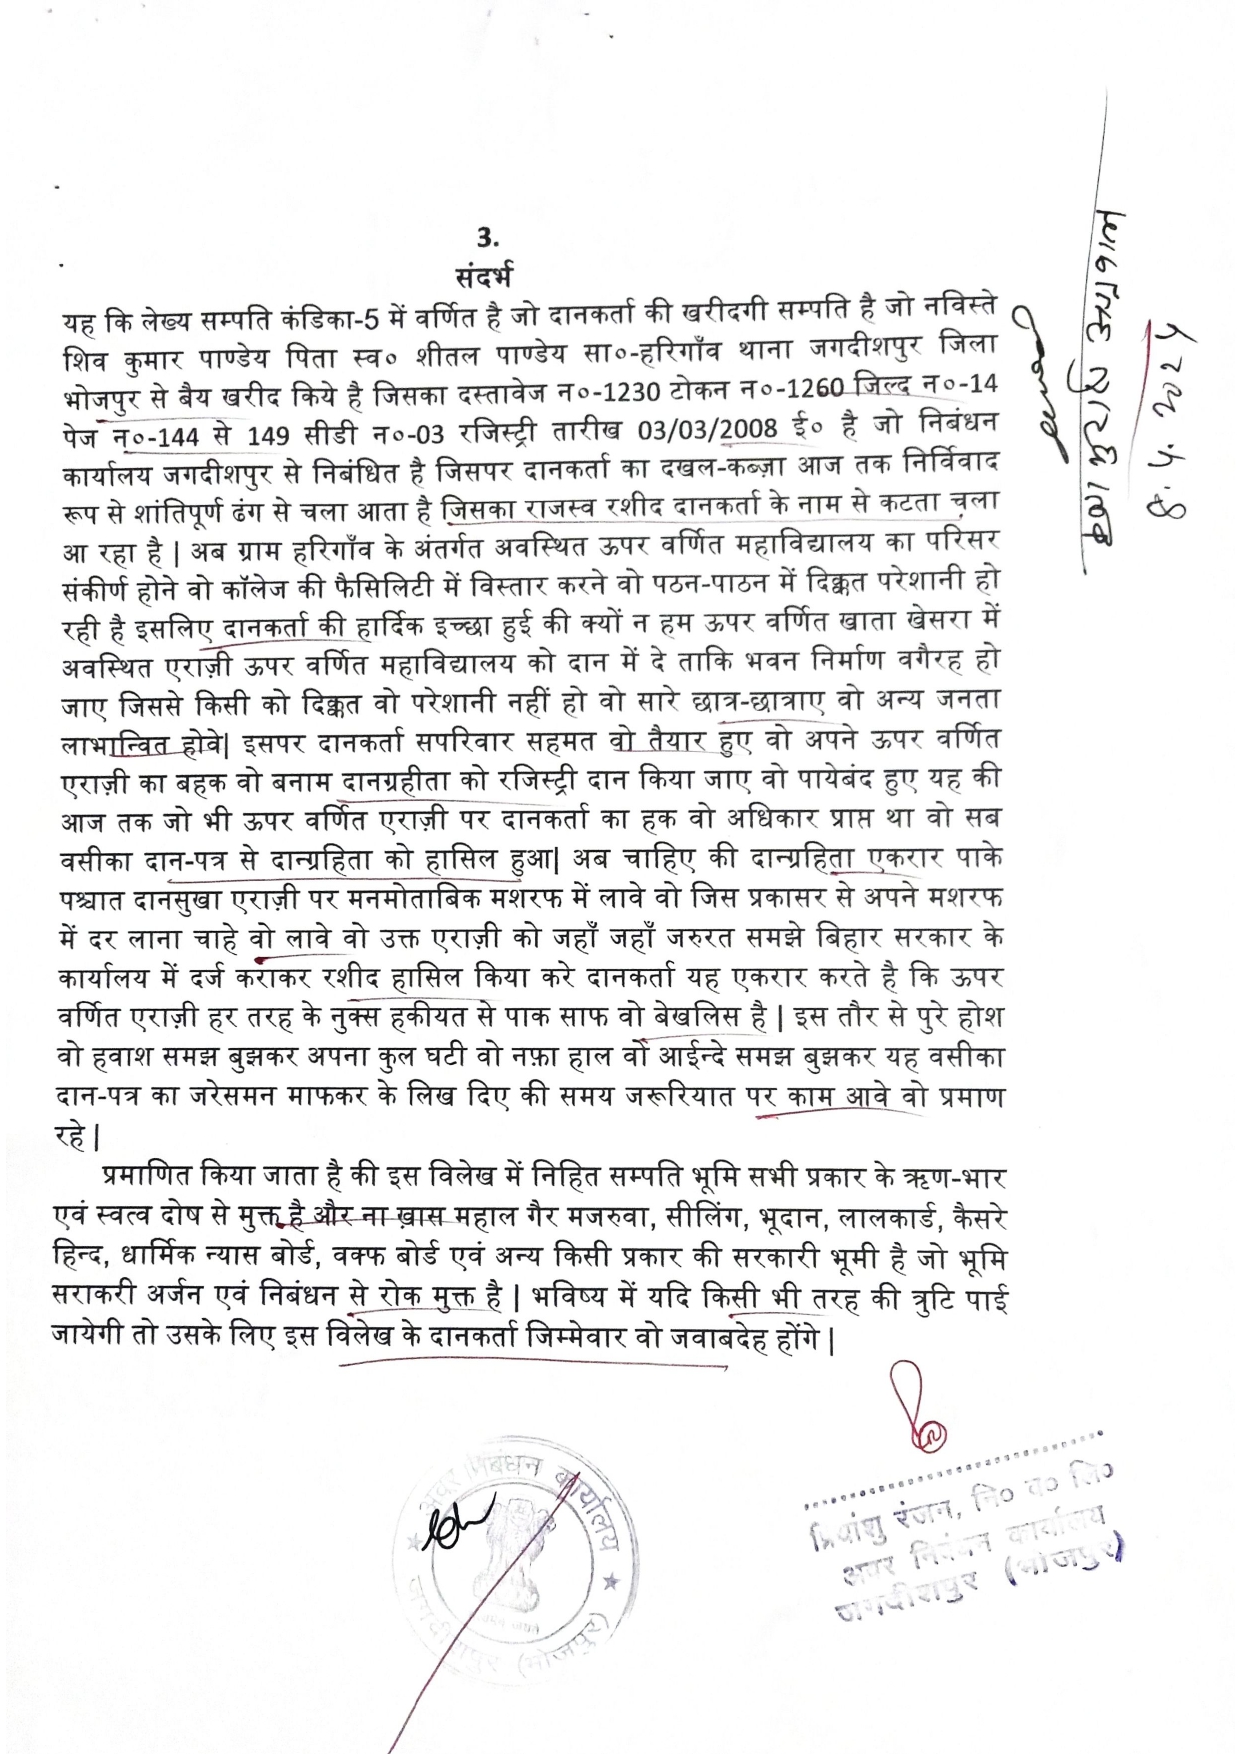 3.
संदर्भ
यह कि लेख्य सम्पति कंडिका-5 में वर्णित है जो दानकर्ता की खरीदगी सम्पति है जो नविस्ते
शिव कुमार पाण्डेय पिता स्व० शीतल पाण्डेय सा०-हरिगाँव थाना जगदीशपुर जिला
भोजपुर से बैय खरीद किये है जिसका दस्तावेज न०-1230 टोकन न०-1260 जिल्द न०-14
पेज न०-144 से 149 सीडी न०-03 रजिस्ट्री तारीख 03/03/2008 ई० है जो निबंधन
कार्यालय जगदीशपुर से निबंधित है जिसपर दानकर्ता का दखल-कब्ज़ा आज तक निर्विवाद
रूप से शांतिपूर्ण ढंग से चला आता है जिसका राजस्व रशीद दानकर्ता के नाम से कटता चला
आ रहा है | अब ग्राम हरिगाँव के अंतर्गत अवस्थित ऊपर वर्णित महाविद्यालय का परिसर
संकीर्ण होने वो कॉलेज की फैसिलिटी में विस्तार करने वो पठन-पाठन में दिक्कत परेशानी हो
रही है इसलिए दानकर्ता की हार्दिक इच्छा हुई की क्यों न हम ऊपर वर्णित खाता खेसरा में
अवस्थित एराज़ी ऊपर वर्णित महाविद्यालय को दान में दे ताकि भवन निर्माण वगैरह हो
जाए जिससे किसी को दिक्कत वो परेशानी नहीं हो वो सारे छात्र-छात्राए वो अन्य जनता
लाभान्वित होवे| इसपर दानकर्ता सपरिवार सहमत वो तैयार हुए वो अपने ऊपर वर्णित
एराज़ी का बहक वो बनाम दानग्रहीता को रजिस्ट्री दान किया जाए वो पायेबंद हुए यह की
आज तक जो भी ऊपर वर्णित एराज़ी पर दानकर्ता का हक वो अधिकार प्राप्त था वो सब
वसीका दान-पत्र से दान्ग्रहिता को हासिल हुआ| अब चाहिए की दान्ग्रहिता एकरार पाके
पश्चात दानसुखा एराज़ी पर मनमोताबिक मशरफ में लावे वो जिस प्रकासर से अपने मशरफ
में दर लाना चाहे वो लावे वो उक्त एराज़ी को जहाँ जहाँ जरुरत समझे बिहार सरकार के
कार्यालय में दर्ज कराकर रशीद हासिल किया करे दानकर्ता यह एकरार करते है कि ऊपर
वर्णित एराज़ी हर तरह के नुक्स हकीयत से पाक साफ वो बेखलिस है | इस तौर से पुरे होश
वो हवाश समझ बुझकर अपना कुल घटी वो नफ़ा हाल वो आईन्दे समझ बुझकर यह वसीका
दान-पत्र का जरेसमन माफकर के लिख दिए की समय जरूरियात पर काम आवे वो प्रमाण
रहे |
प्रमाणित किया जाता है की इस विलेख में निहित सम्पति भूमि सभी प्रकार के ऋण-भार
एवं स्वत्व दोष से मुक्त है और ना ख़ास महाल गैर मजरुवा, सीलिंग, भूदान, लालकार्ड, कैसरे
हिन्द, धार्मिक न्यास बोर्ड, वक्फ बोर्ड एवं अन्य किसी प्रकार की सरकारी भूमी है जो भूमि
सराकरी अर्जन एवं निबंधन से रोक मुक्त है | भविष्य में यदि किसी भी तरह की त्रुटि पाई
जायेगी तो उसके लिए इस विलेख के दानकर्ता जिम्मेवार वो जवाबदेह होंगे |
अवर निबंधन कार्यालय
जगदीशपुर (भोजपुर)
प्रियांशु रंजन, नि० व० लि०
अवर निबंधन कार्यालय
जगदीशपुर (भोजपुर)